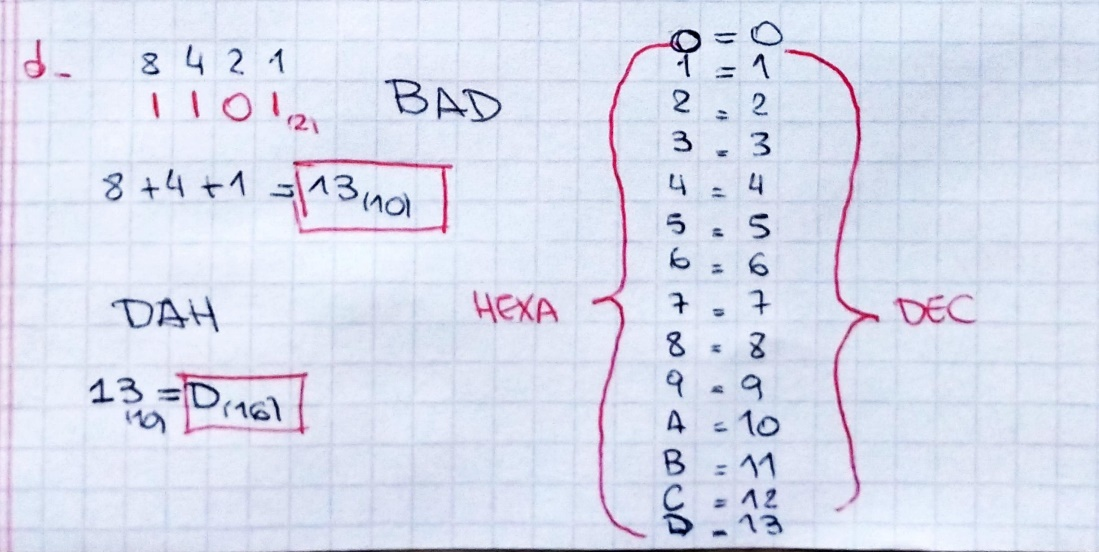 d-
8 4 2 1
1 1 0 1(2)
BAD
8 + 4 + 1 = 13(10)
DAH
13(10) = D(16)
HEXA
0 = 0
1 = 1
2 = 2
3 = 3
4 = 4
5 = 5
6 = 6
7 = 7
8 = 8
9 = 9
A = 10
B = 11
C = 12
D = 13
DEC